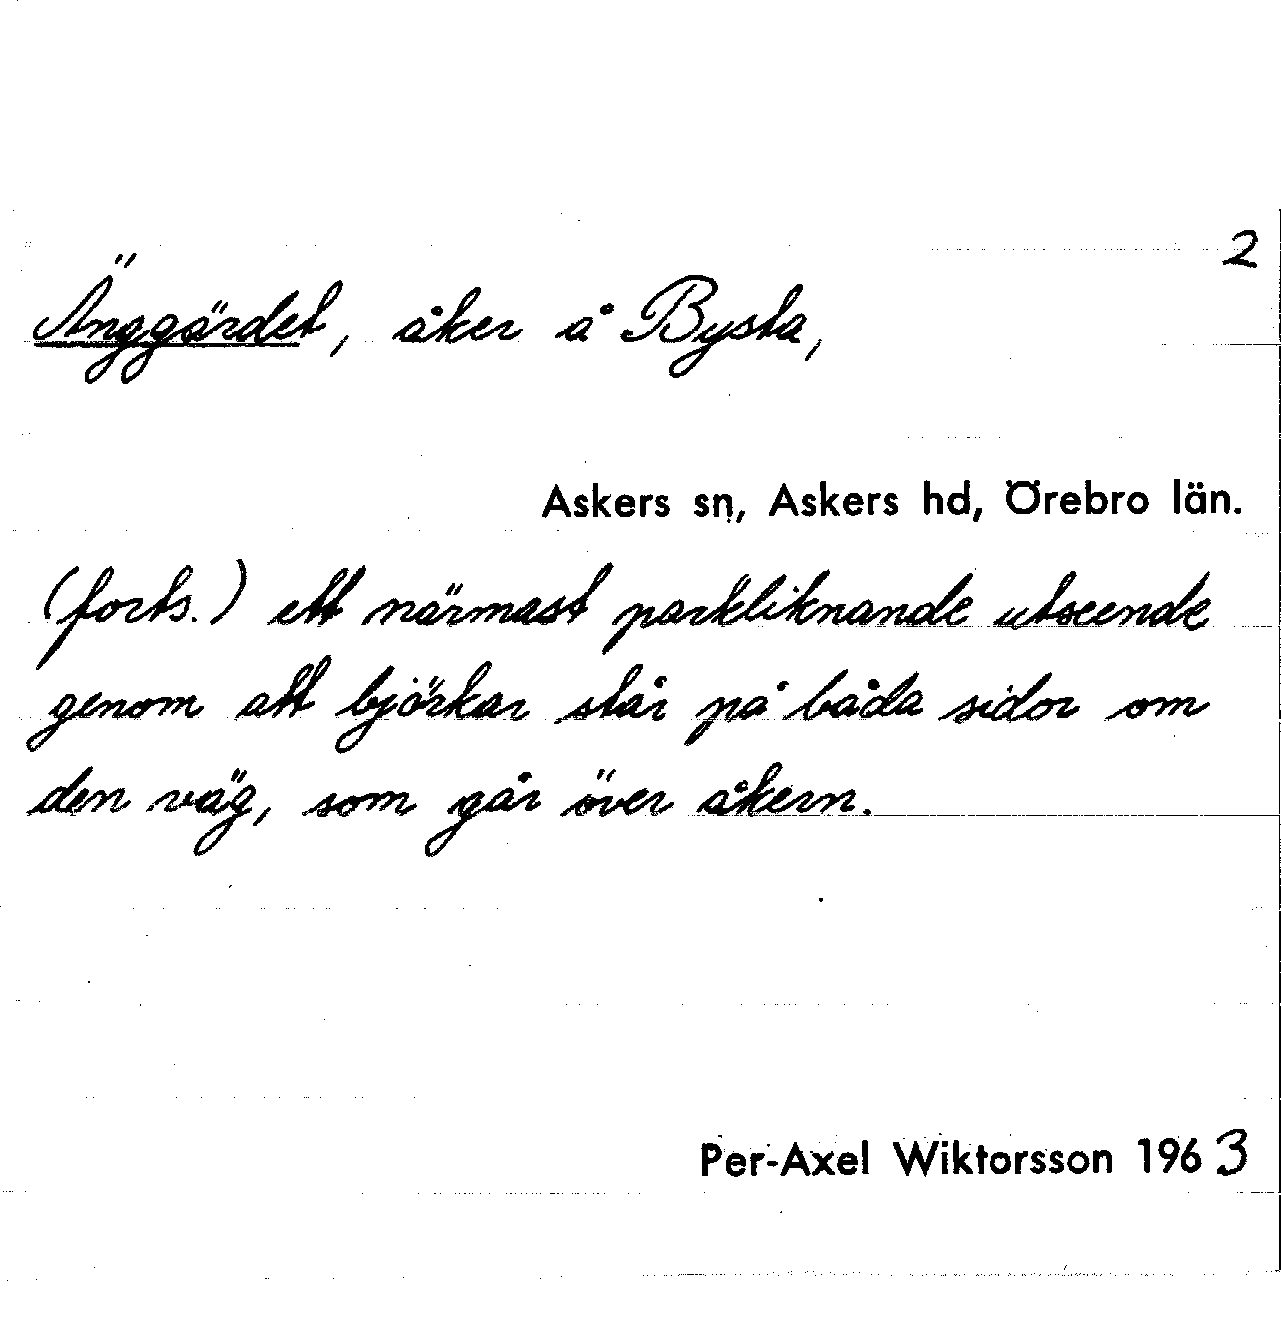 2
Änggärdet, åker å Bysta,
Askers sn, Askers hd, Örebro län.
(forts.) ett närmast parkliknande utseende
genom att björkar står på båda sidor om
den väg, som går över åkern.
Per-Axel Wiktorsson 1963